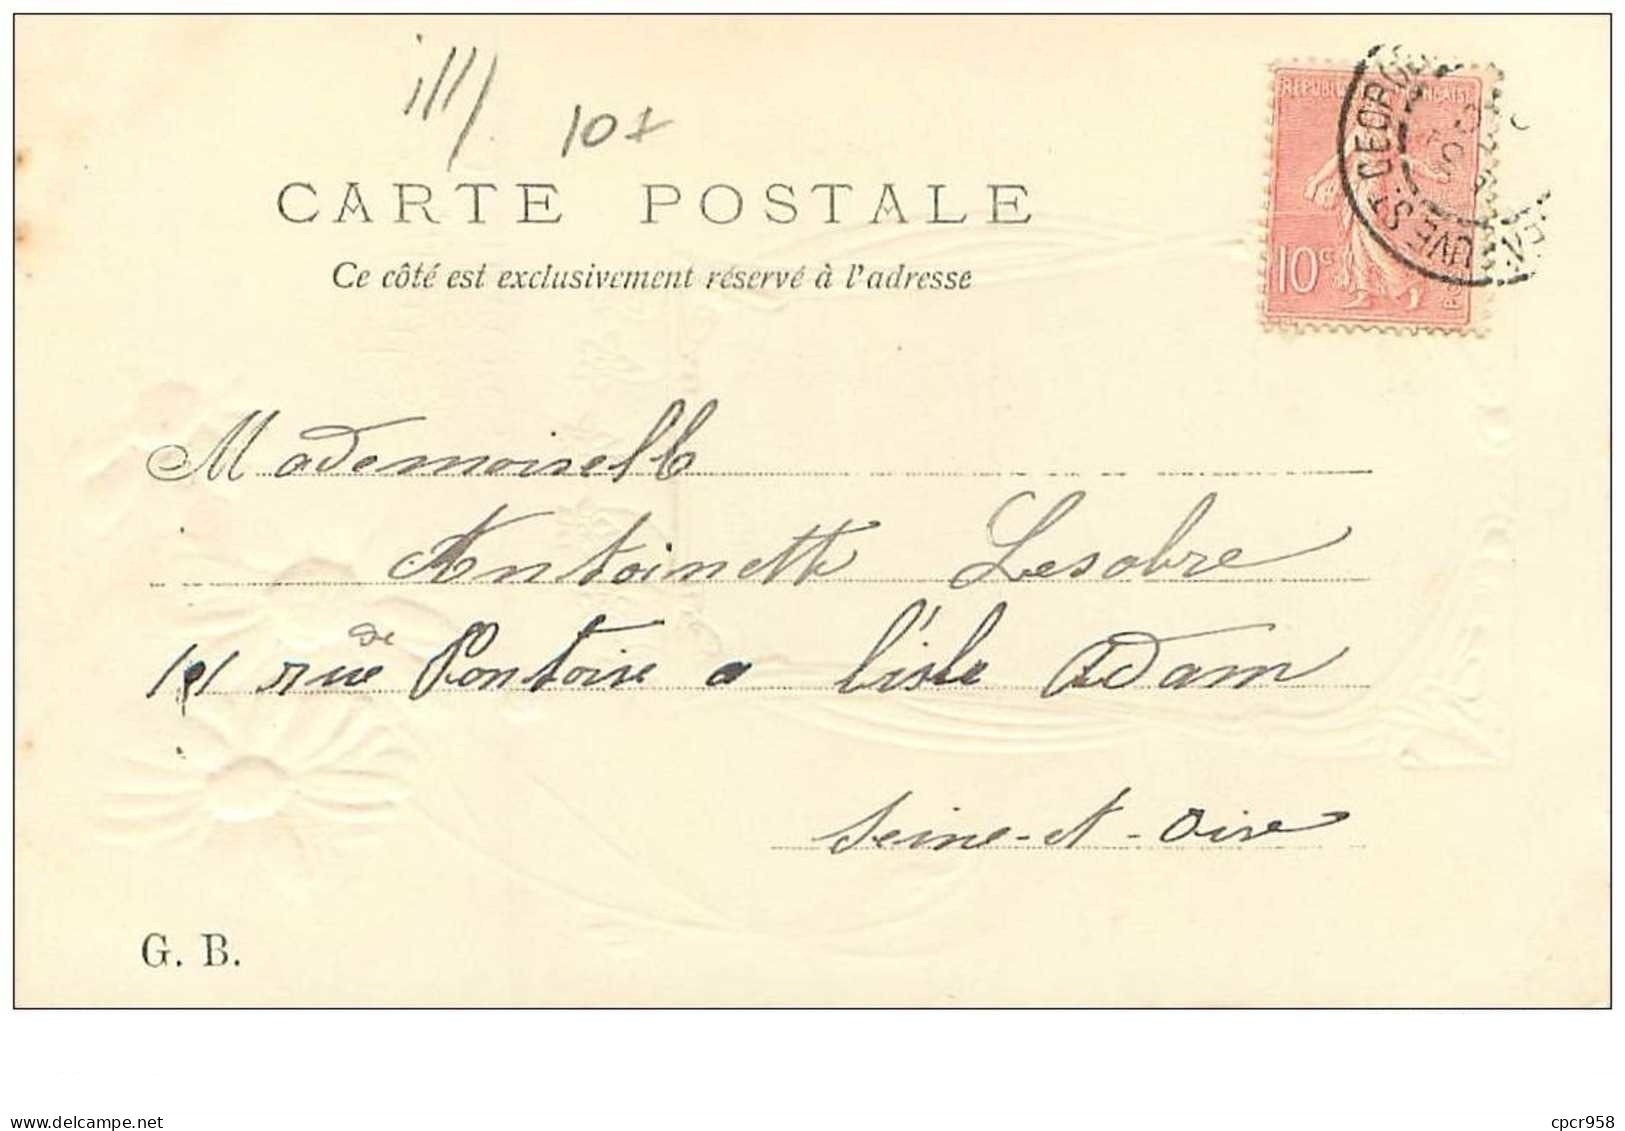 ill
10x
RÉPUBLIQUE FRANÇAISE
10c
UVE ST GEORG
CARTE POSTALE
Ce côté est exclusivement réservé à l'adresse
Mademoiselle
Antoinette Lesobre
rue de Pontoise a l'isle Adam
Seine-et-Oise
G. B.
https://www.delcampe.net
cpcr958